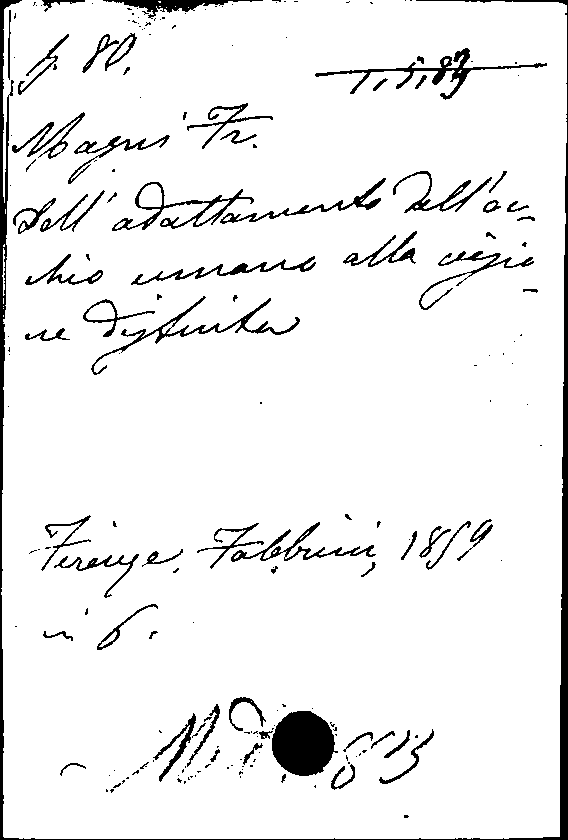 p. 80.
1, 5, 83
Magni Fr.
Dell' adattamento dell' oc-
chio umano alla visio-
ne distinta
Firenze, Fabbrini, 1859
in 8.
M. d. 813